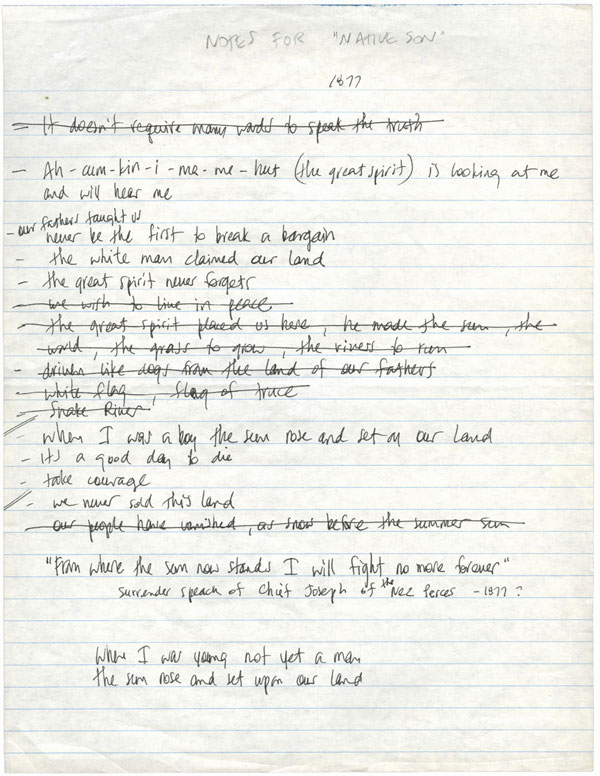 NOTES FOR "NATIVE SON"
1877
- It doesn't require many words to speak the truth
- Ah-cum-kin-i-ma-me-hut (the great spirit) is looking at me
and will hear me
- our fathers taught us
never be the first to break a bargain
- the white man claimed our land
- the great spirit never forgets
- we wish to live in peace
- the great spirit placed us here, he made the sun, the
world, the grass to grow, the rivers to run
- driven like dogs from the land of our fathers
- white flag, flag of truce
- Snake River
- When I was a boy the sun rose and set on our land
- its a good day to die
- take courage
- we never sold this land
- our people have vanished, as snow before the summer sun
"From where the sun now stands I will fight no more forever"
surrender speach of Chief Joseph of the Nez Perces - 1877?
When I was young not yet a man
the sun rose and set upon our land